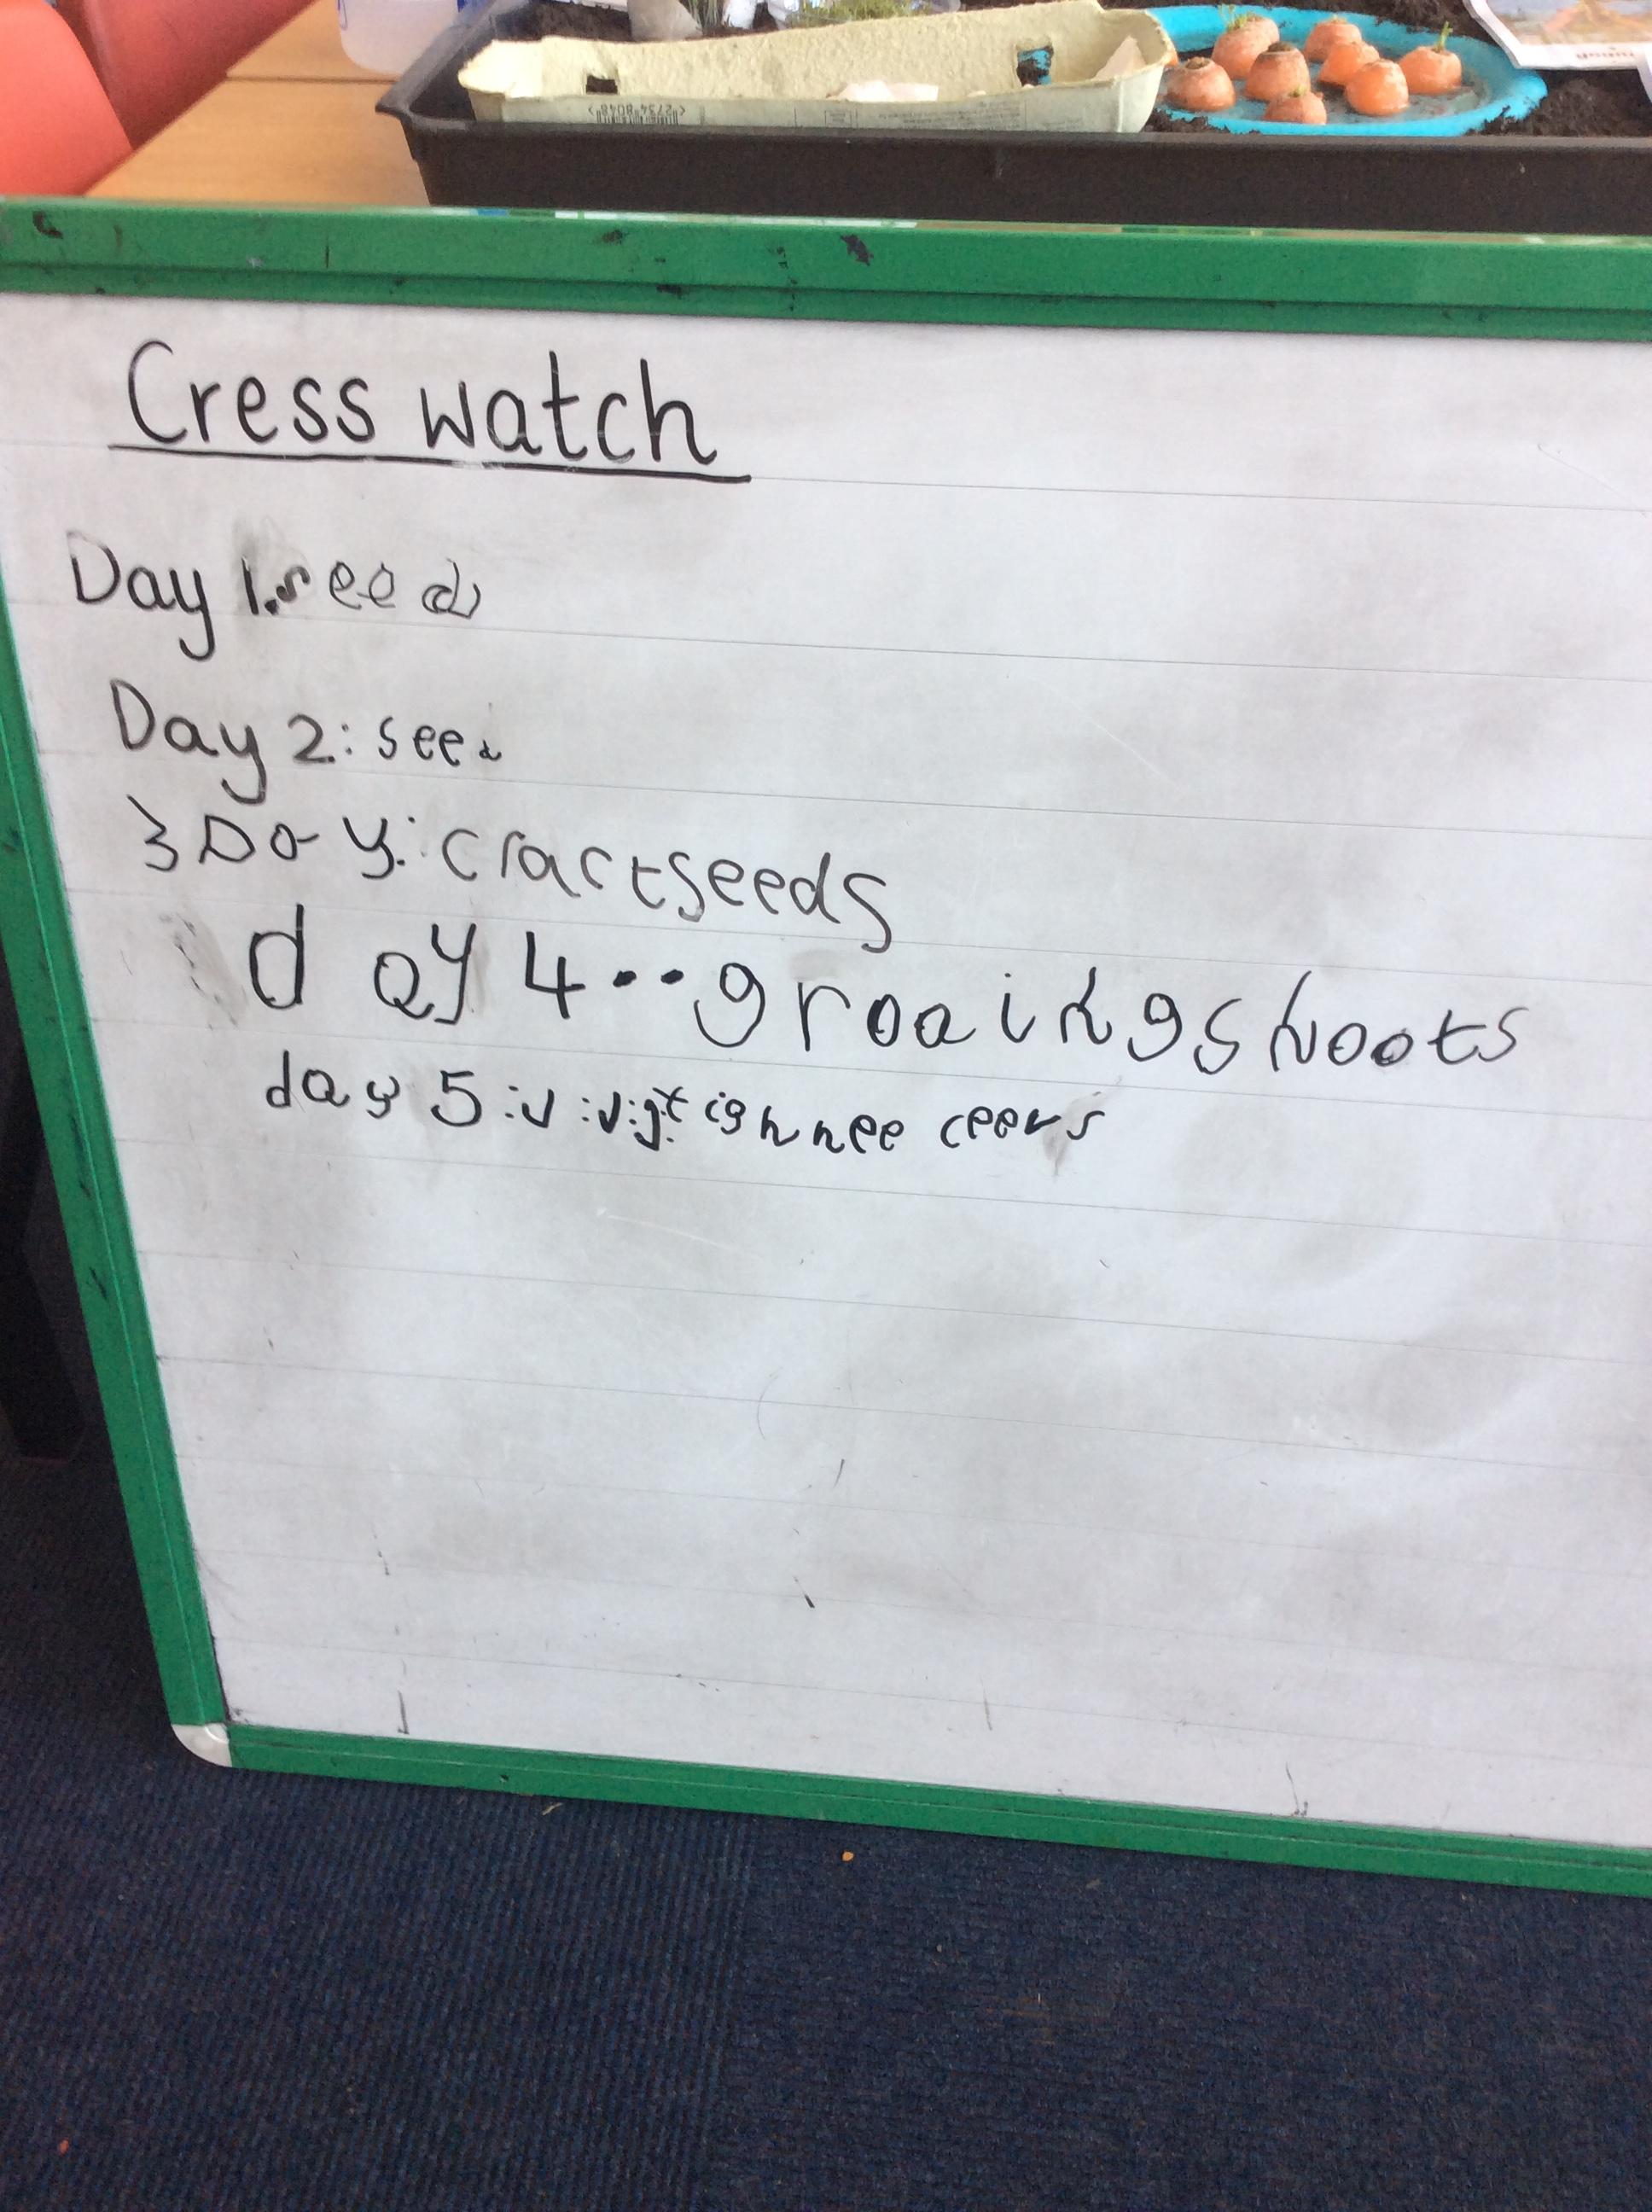 Cress watch
Day 1. seeds
Day 2: seed
3 Day: cractseeds
day 4.. groaing shoots
day 5